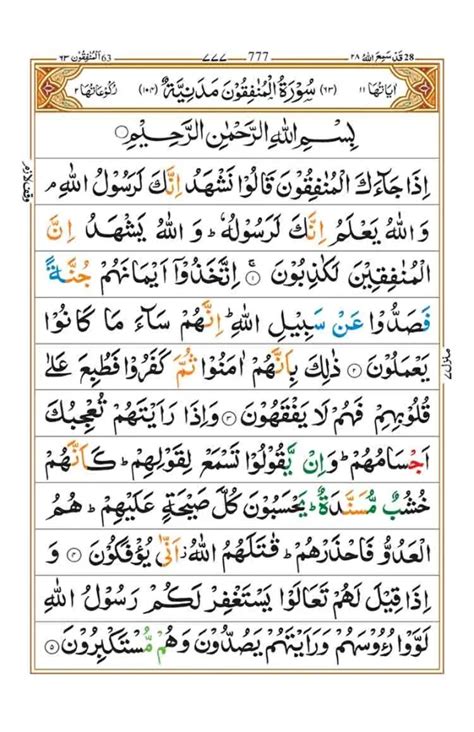 28 قَدْ سَمِعَ اللّٰهُ ٢٨ 777 ٧٧٧ 63 اَلْمُنٰفِقُوْن ٦٣
اٰيَاتُهَا ١١ (٦٣) سُوْرَةُ الْمُنٰفِقُوْنَ مَدَنِيَّةٌ (١٠٤) رُكُوْعَاتُهَا ٢
بِسْمِ اللّٰهِ الرَّحْمٰنِ الرَّحِيْمِ
اِذَا جَآءَكَ الْمُنٰفِقُوْنَ قَالُوْا نَشْهَدُ اِنَّكَ لَرَسُوْلُ اللّٰهِ م
وَاللّٰهُ يَعْلَمُ اِنَّكَ لَرَسُوْلُهٗ ؕ وَاللّٰهُ يَشْهَدُ اِنَّ
الْمُنٰفِقِيْنَ لَكٰذِبُوْنَ ۚ ١ اِتَّخَذُوْۤا اَيْمَانَهُمْ جُنَّةً
فَصَدُّوْا عَنْ سَبِيْلِ اللّٰهِ ؕ اِنَّهُمْ سَآءَ مَا كَانُوْا
يَعْمَلُوْنَ ٢ ذٰلِكَ بِاَنَّهُمْ اٰمَنُوْا ثُمَّ كَفَرُوْا فَطُبِعَ عَلٰى
قُلُوْبِهِمْ فَهُمْ لَا يَفْقَهُوْنَ ٣ وَاِذَا رَاَيْتَهُمْ تُعْجِبُكَ
اَجْسَامُهُمْ ؕ وَاِنْ يَّقُوْلُوْا تَسْمَعْ لِقَوْلِهِمْ ؕ كَاَنَّهُمْ
خُشُبٌ مُّسَنَّدَةٌ ؕ يَحْسَبُوْنَ كُلَّ صَيْحَةٍ عَلَيْهِمْ ؕ هُمُ
الْعَدُوُّ فَاحْذَرْهُمْ ؕ قٰتَلَهُمُ اللّٰهُ ؗ اَنّٰى يُؤْفَكُوْنَ ٤
وَاِذَا قِيْلَ لَهُمْ تَعَالَوْا يَسْتَغْفِرْ لَكُمْ رَسُوْلُ اللّٰهِ
لَوَّوْا رُءُوْسَهُمْ وَرَاَيْتَهُمْ يَصُدُّوْنَ وَهُمْ مُّسْتَكْبِرُوْنَ ٥
وقف لازم
منزل ٧